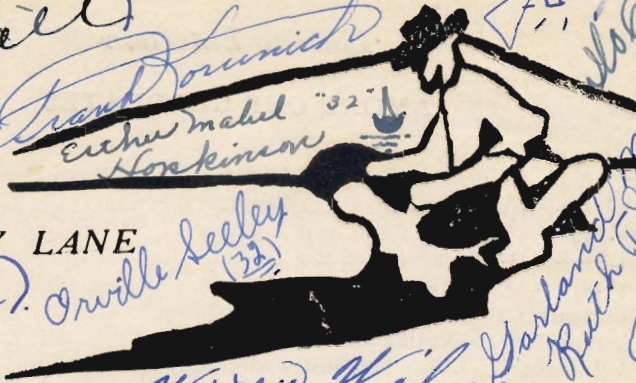 Frank
Esther Mabel "32"
Hopkinson
LANE
Orville Seeley
(32)
Garland
Ruth